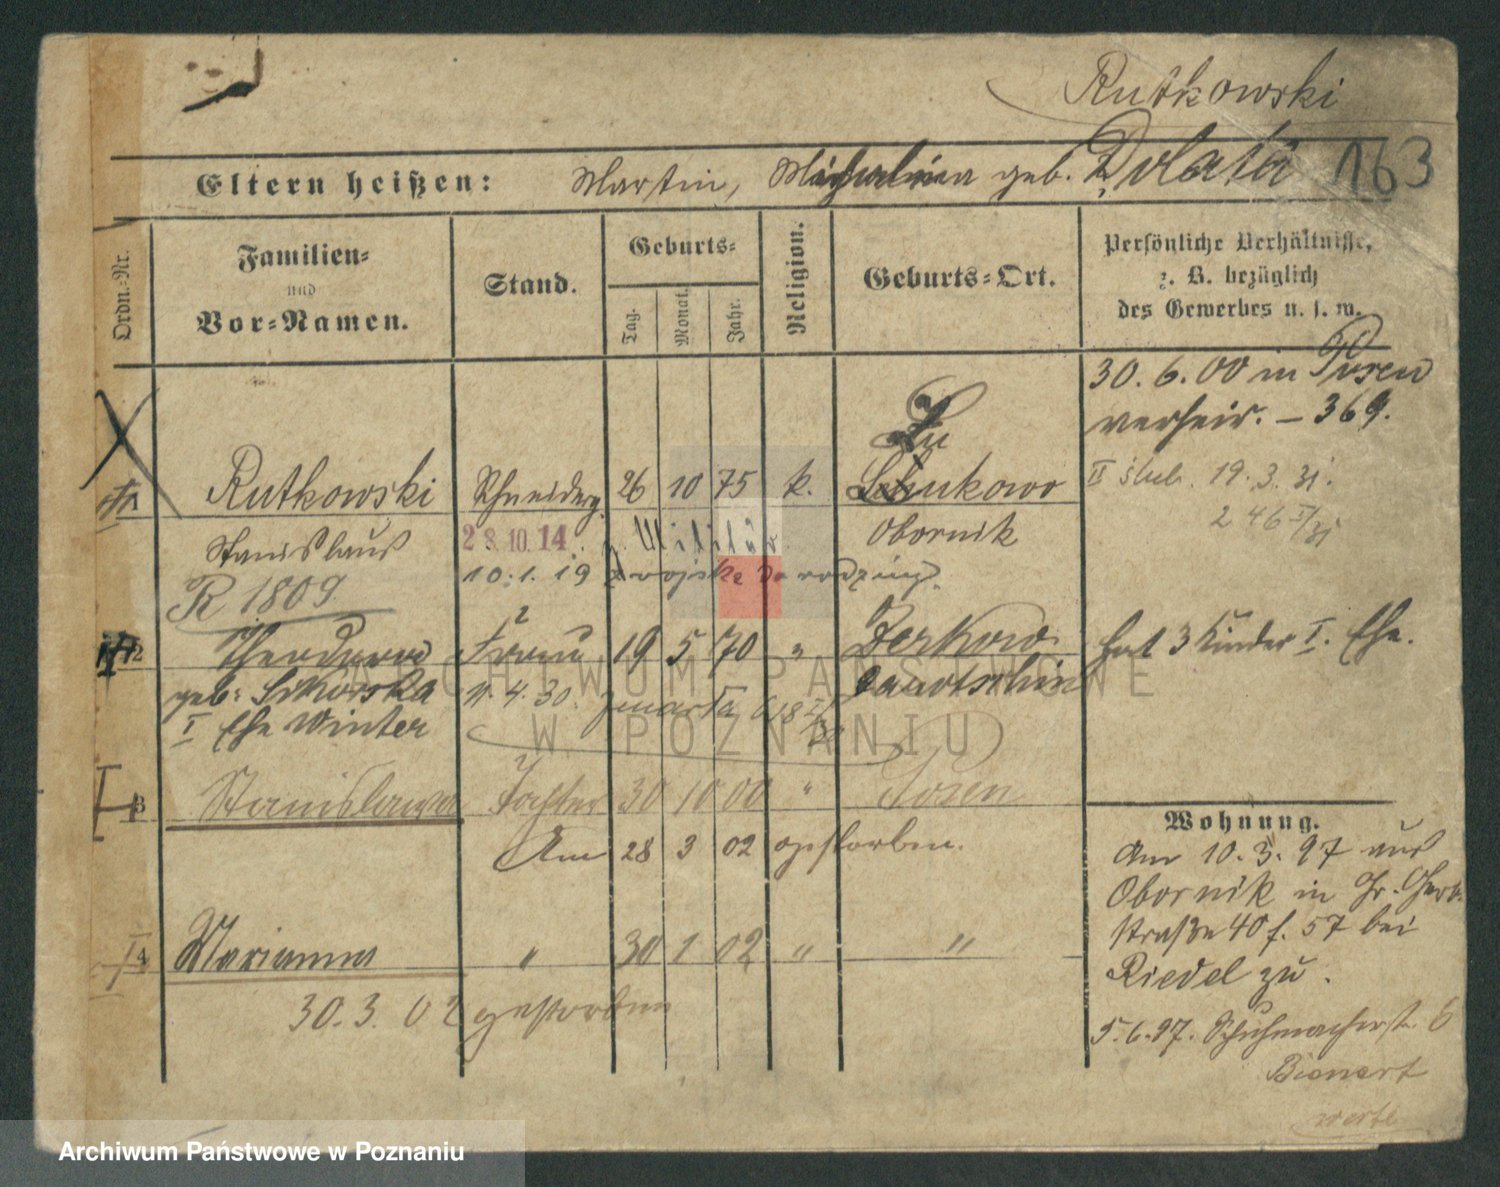 Rutkowski
163
Eltern heißen: Martin, Michalina geb. Dolata
Ordn.-Nr.
Familien- und Vor-Namen.
Stand.
Geburts-
Tag.
Monat.
Jahr.
Religion.
Geburts-Ort.
Persönliche Verhältnisse, z. B. bezüglich des Gewerbes u. s. w.
30. 6. 00 in Posen
verheir. – 369.
1 Rutkowski Schneiderg. 26 10 75 k. Lukowo
II ślub. 19. 3. 31.
246 I/31
Stanislaus 28.10.14. z. Militär Obornik
10. 1. 19 z wojska do rodziny.
R 1809
2 Theodora Frau 19 5 70 " Zerkow
hat 3 Kinder I. Ehe.
geb. Sikorska 11. 4. 30. zmarła
I Ehe Winter
3 Stanislawa Tochter 30 10 00 " Posen
Am 28 3 02 gestorben.
4 Marianna " 30 1 02 " "
30. 3. 02 gestorben
Wohnung.
Am 10. 3. 97 aus
Obornik in Gr. Gerb.
straße 40 f. 57 bei
Riedel zu.
5. 6. 97. Schuhmacherst. 6
Bienert
ARCHIWUM PAŃSTWOWE
W POZNANIU
Archiwum Państwowe w Poznaniu